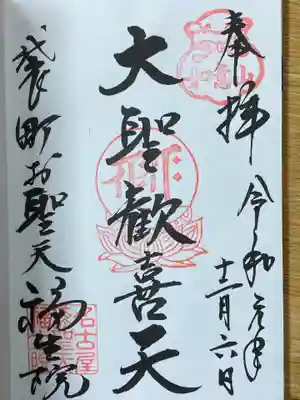 奉拝 令和元年十二月六日
大聖歓喜天
袋町お聖天 福生院
名古屋